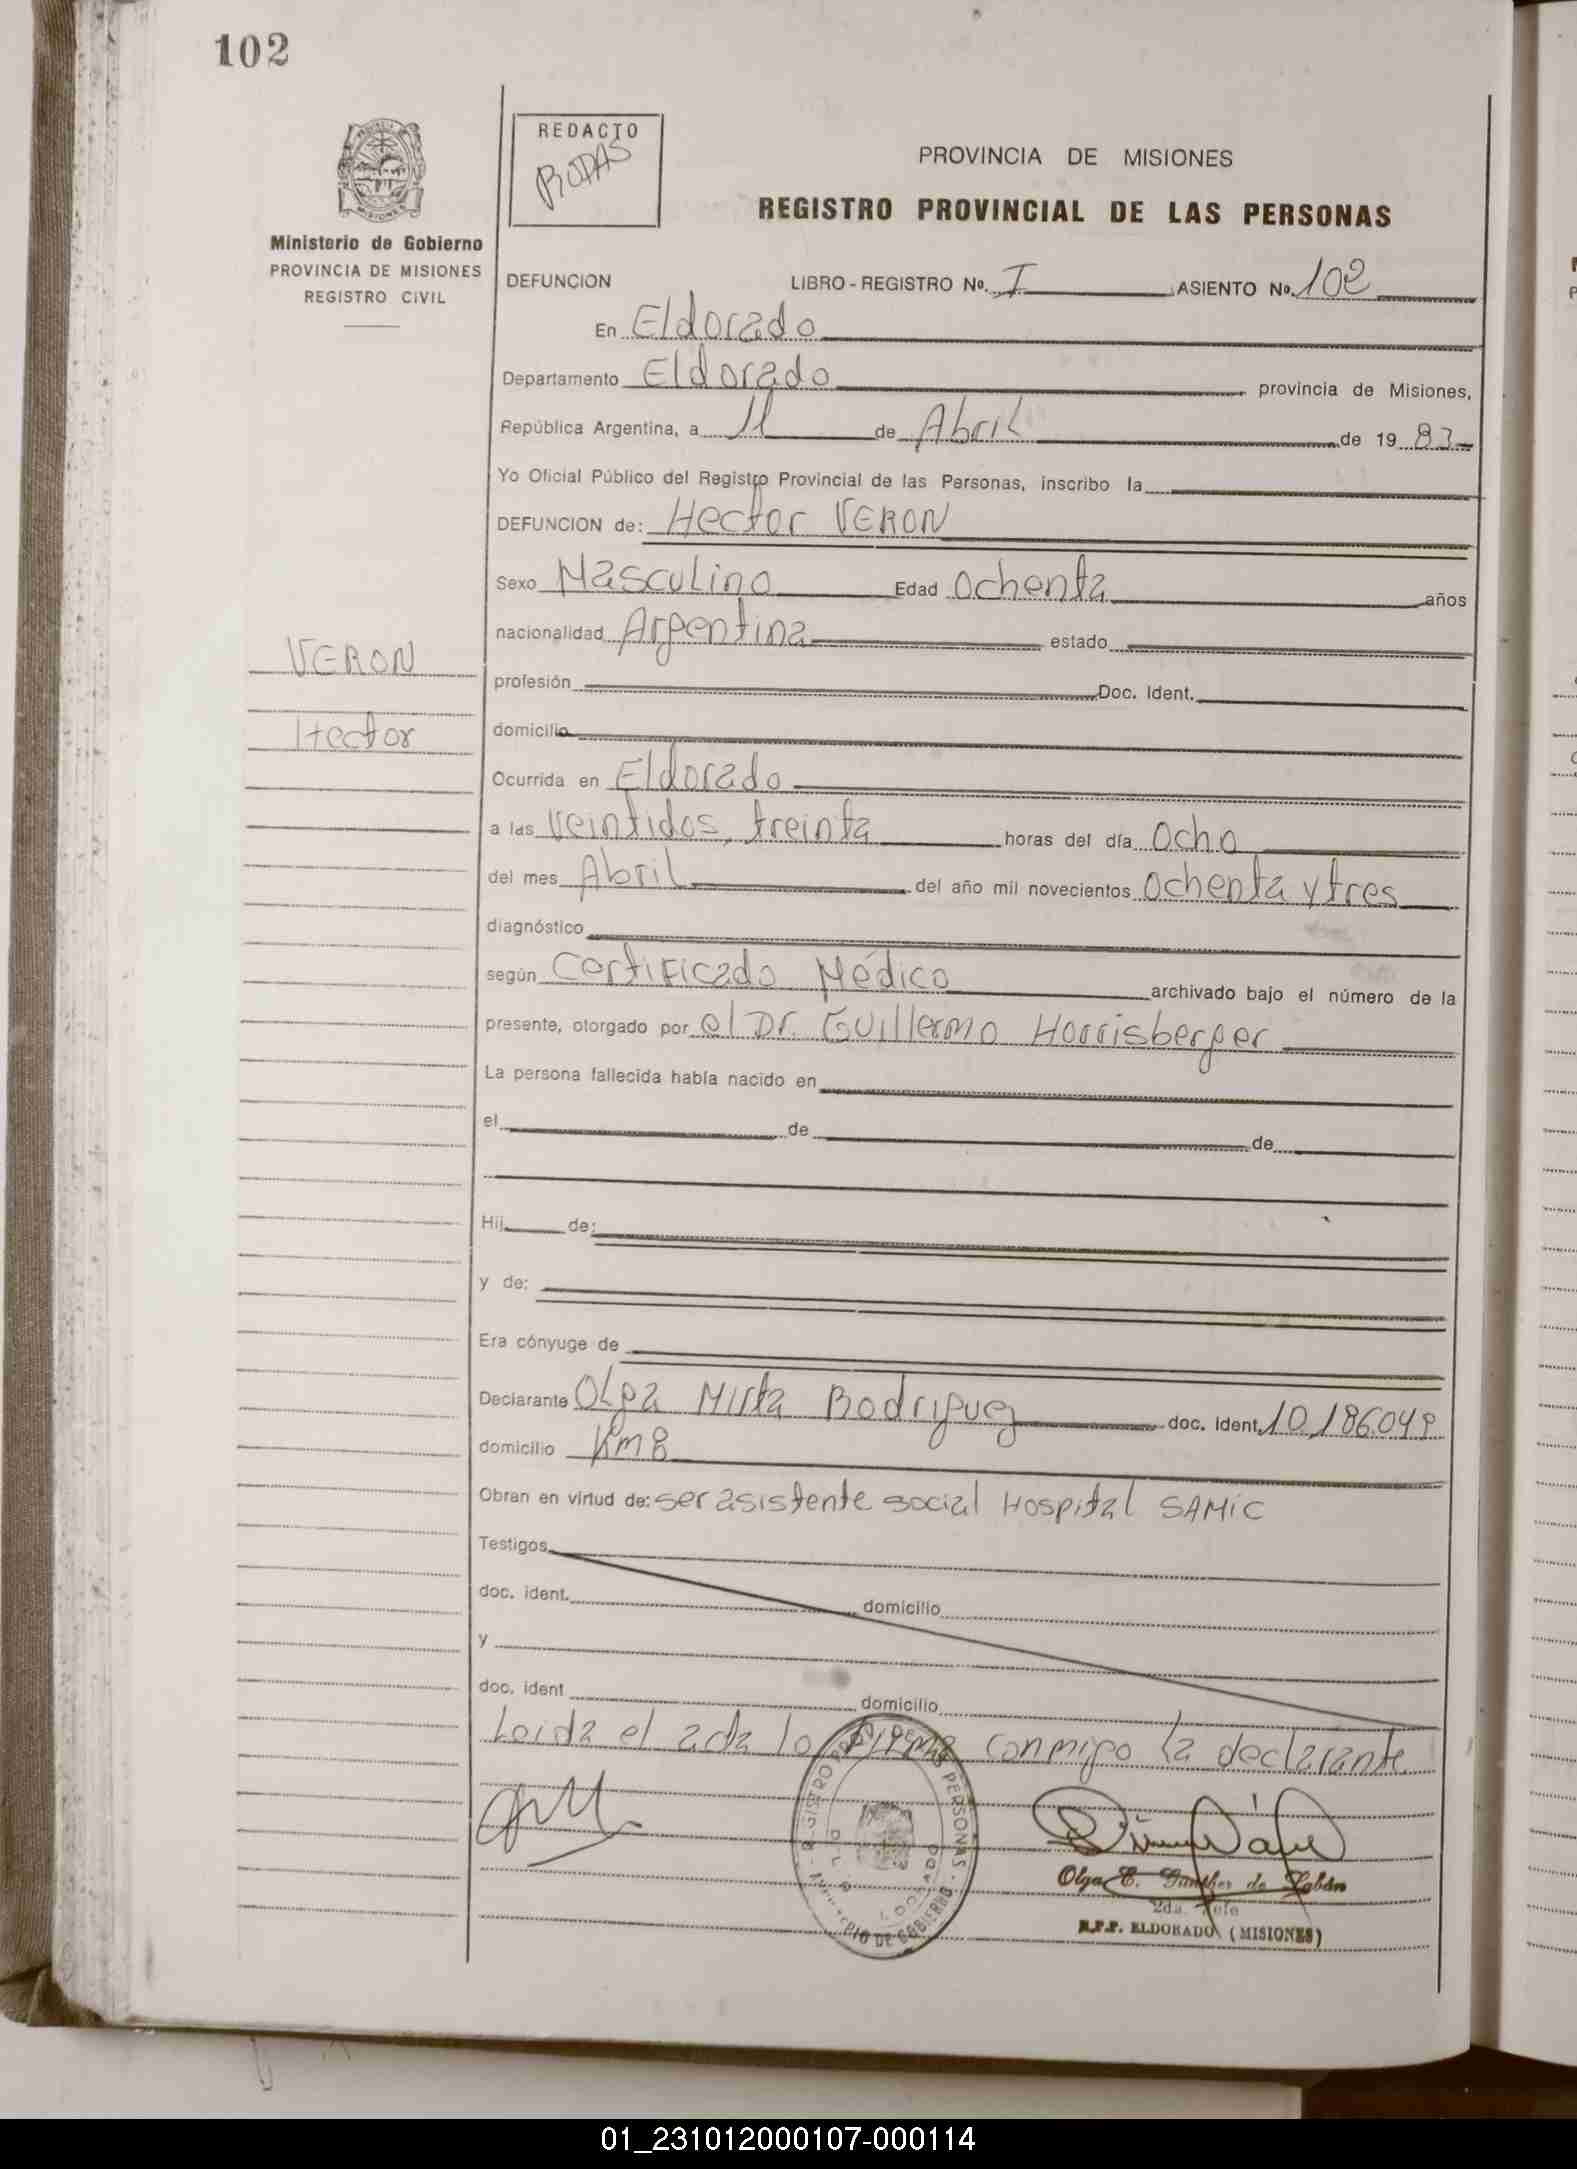 102
REDACTO
RODAS
PROVINCIA DE MISIONES
REGISTRO PROVINCIAL DE LAS PERSONAS
Ministerio de Gobierno
PROVINCIA DE MISIONES
REGISTRO CIVIL
DEFUNCION LIBRO-REGISTRO No. I ASIENTO No. 102
En Eldorado
Departamento Eldorado provincia de Misiones,
República Argentina, a 11 de Abril de 19 83
Yo Oficial Público del Registro Provincial de las Personas, inscribo la
DEFUNCION de: Hector VERON
Sexo Masculino Edad Ochenta años
nacionalidad Argentina estado
VERON
profesión Doc. Ident.
Hector
domicilio
Ocurrida en Eldorado
a las Veintidos, treinta horas del día Ocho
del mes Abril del año mil novecientos Ochenta y tres
diagnóstico
según Certificado Médico archivado bajo el número de la
presente, otorgado por el Dr. Guillermo Horrisberger
La persona fallecida había nacido en
el de de
Hij de:
y de:
Era cónyuge de
Declarante Olga Mirta Rodriguez doc. Ident. 10.186.049
domicilio Km 8
Obran en virtud de: ser asistente social Hospital SAMIC
Testigos
doc. ident. domicilio
y
doc. ident domicilio
Leida el acta lo firma conmigo la declarante
REGISTRO PROV. DE LAS PERSONAS
MINISTERIO DE GOBIERNO
ELDORADO
Olga E. Gunther de Laban
2da. Jefe
R.P.P. ELDORADO (MISIONES)
01_231012000107-000114